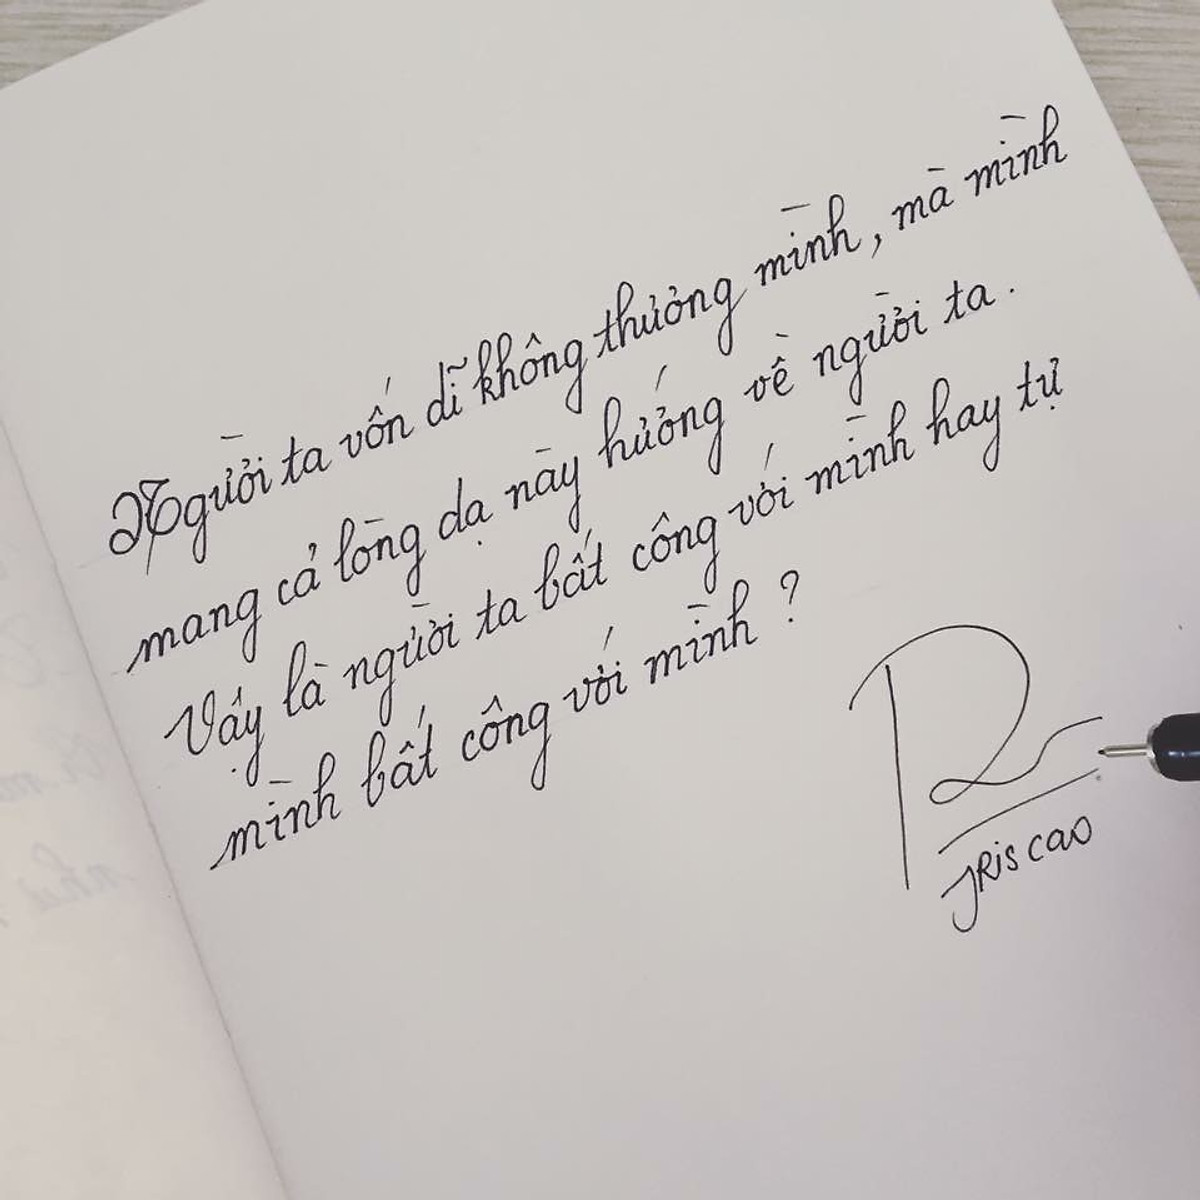 Người ta vốn dĩ không thương mình, mà mình
mang cả lòng dạ này hướng về người ta.
Vậy là người ta bất công với mình hay tự
mình bất công với mình?
R
JRis cao